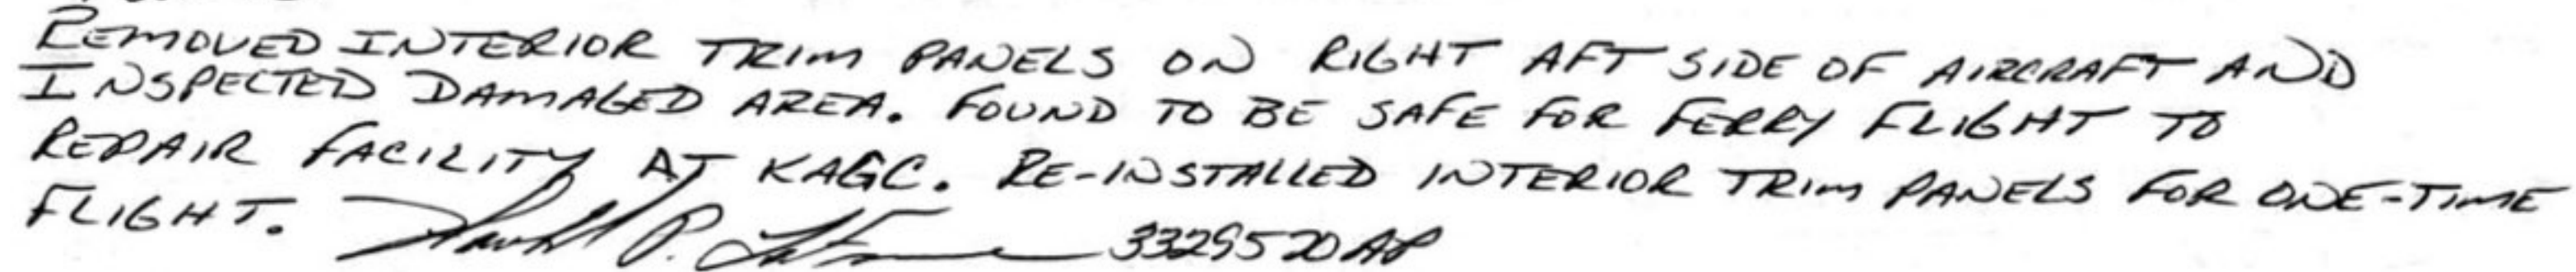 REMOVED INTERIOR TRIM PANELS ON RIGHT AFT SIDE OF AIRCRAFT AND
INSPECTED DAMAGED AREA. FOUND TO BE SAFE FOR FERRY FLIGHT TO
REPAIR FACILITY AT KAGC. RE-INSTALLED INTERIOR TRIM PANELS FOR ONE-TIME
FLIGHT. P. 3329520 AP